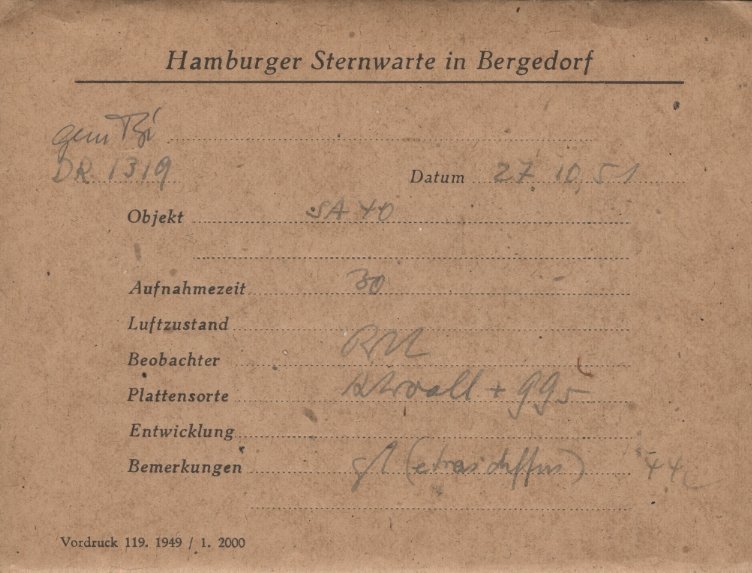 Hamburger Sternwarte in Bergedorf
gem
DR 1319
Datum 27 10, 51
Objekt SA 40
Aufnahmezeit 30
Luftzustand
Beobachter
Plattensorte + 995
Entwicklung
Bemerkungen (etwas diffus) 44
Vordruck 119. 1949 / 1. 2000